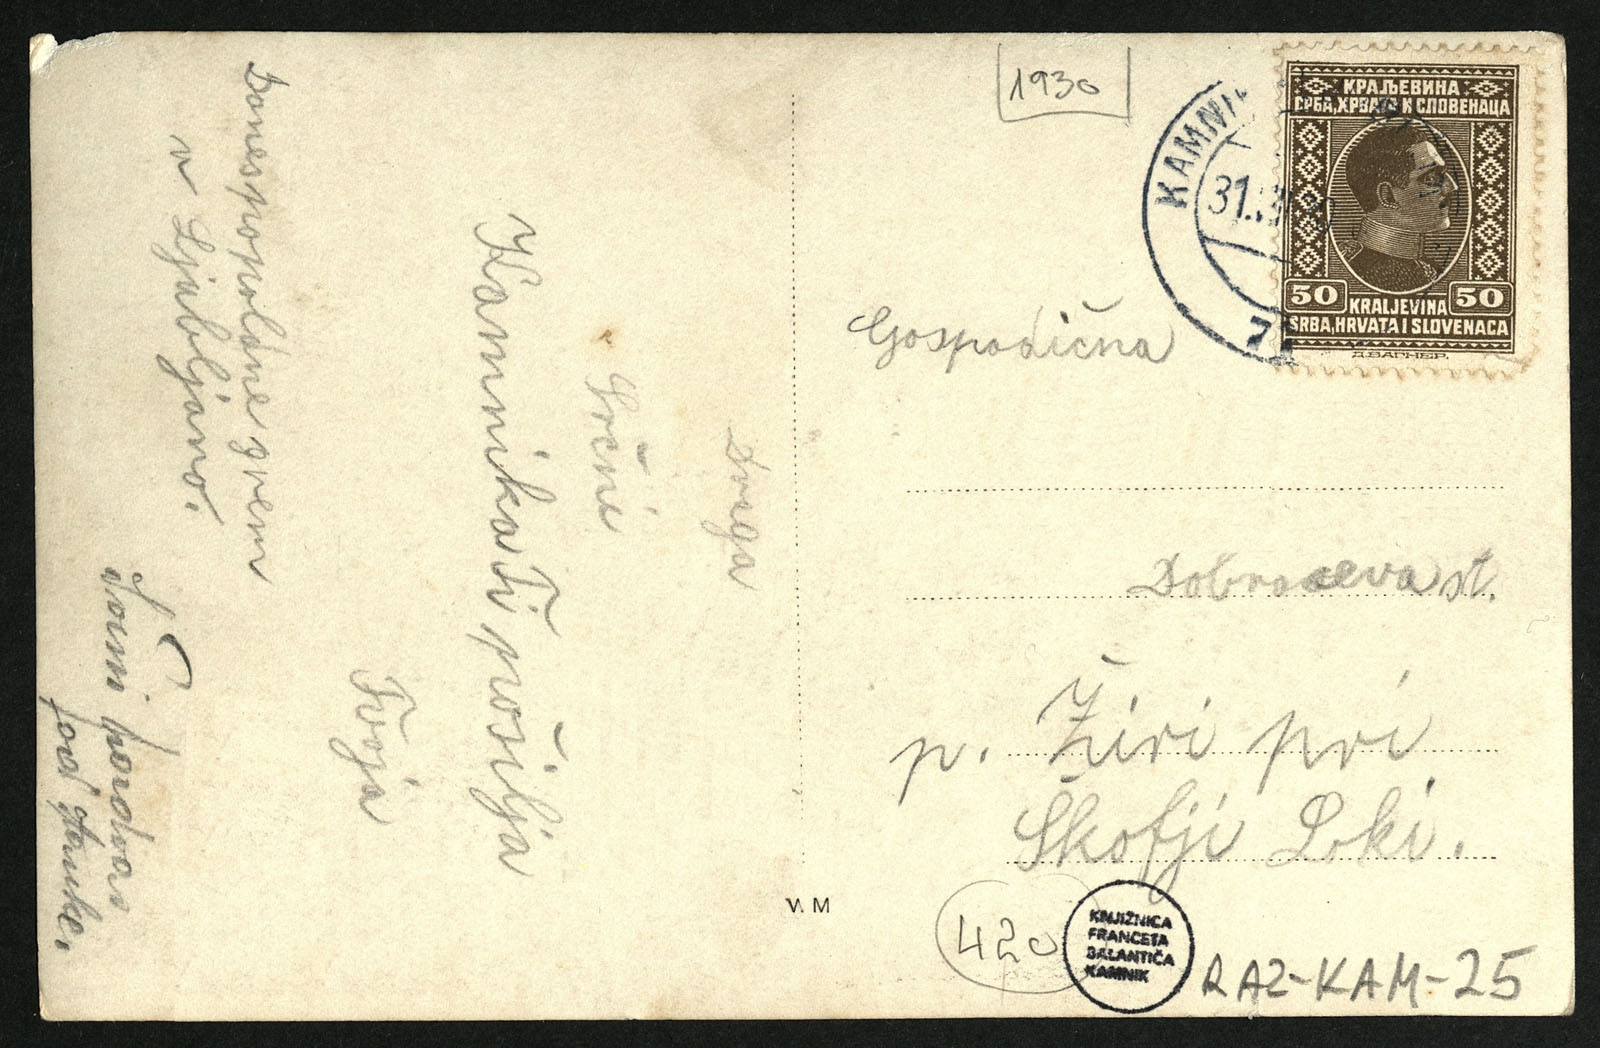 1930
КРАЉЕВИНА
СРБА, ХРВАТА И СЛОВЕНАЦА
50 50
KRALJEVINA
SRBA, HRVATA I SLOVENACA
Д.ВАГНЕР.
KAMNIK
31.
Gospodična
st.
p. Žiri pri
Škofji Loki.
Draga
Srčni
Kamnika Ti pošilja
Tvoja
Danes popoldne grem
v Ljubljano.
Srčni pozdrav
od
V. M
420
KNJIŽNICA
FRANCETA
BALANTIČA
KAMNIK
RAZ-KAM-25